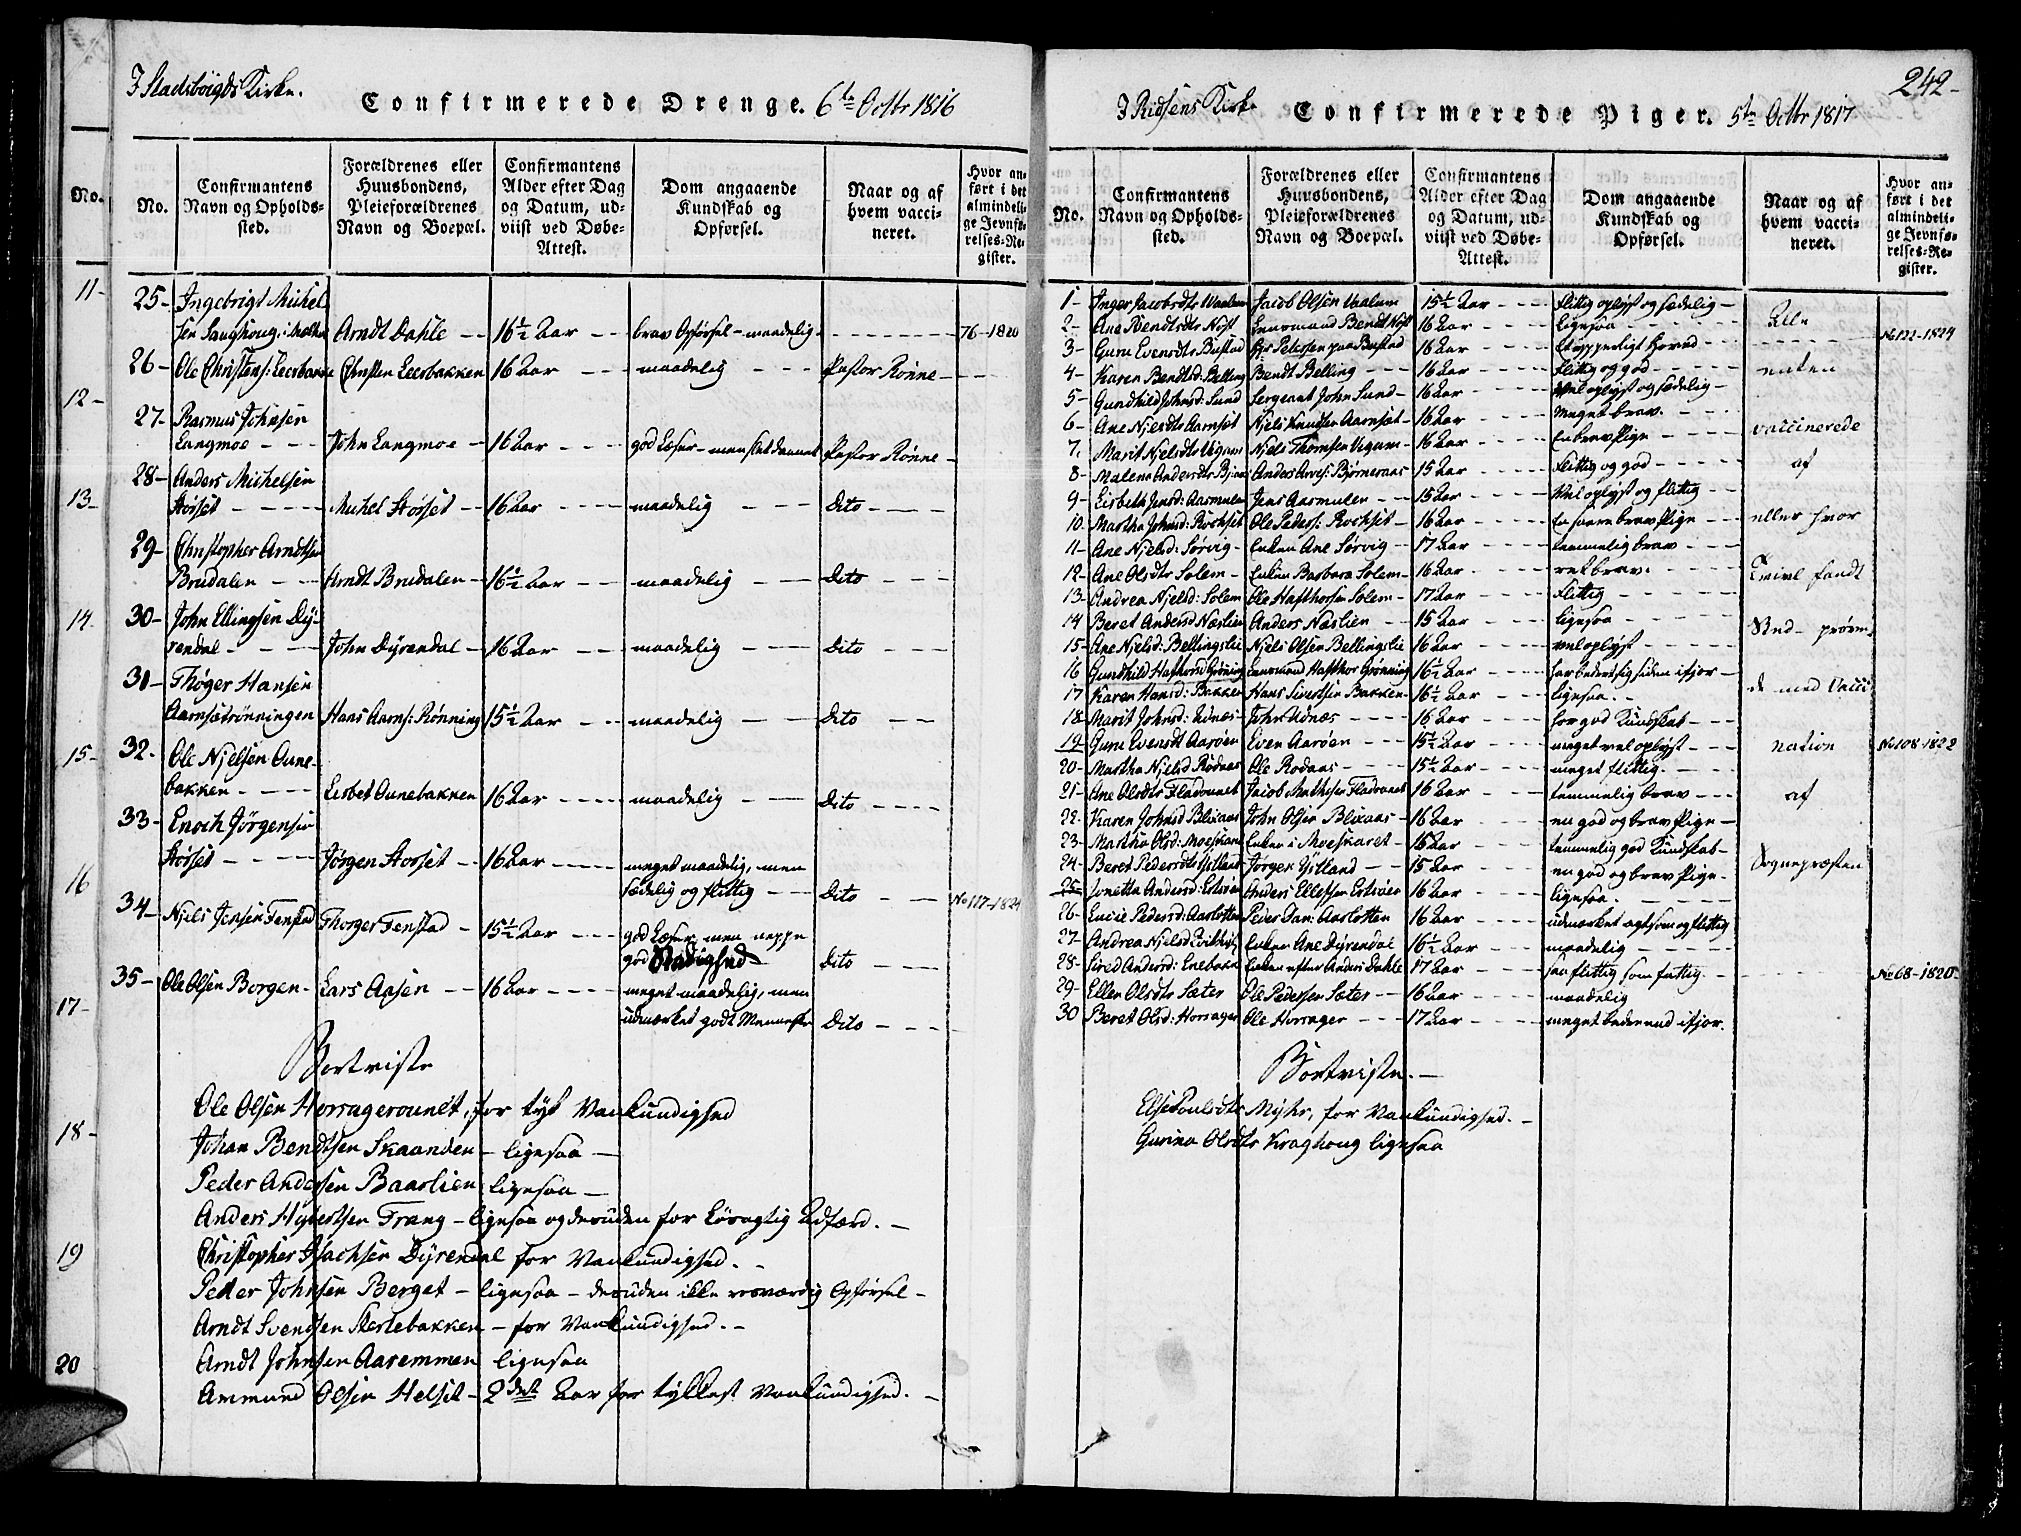 I Stadsbøigds Kirke.
Confirmerede Drenge. 6te Octbr 1816
No.
No.
Confirmantens Navn og Opholds-sted.
Forældrenes eller Huusbondens, Pleieforældrenes Navn og Boepæl.
Confirmantens Alder efter Dag og Datum, ud-viist ved Døbe-Attest.
Dom angaaende Kundskab og Opførsel.
Naar og af hvem vacci-neret.
Hvor an-ført i det almindeli-ge Jevnfø-relses-Re-gister.
11-
25- Ingebrigt Michel
sen Arndt Dahle - - 16½ Aar - - brav Opførsel - maadelig - - - - 76-1820
26- Ole Christens: Leerbakke Christen Leerbakken 16 Aar - - - maadelig - - - Pastor Rønne - -
12-
27- Rasmus Johnsen
Langmoe - - - John Langmoe - 16 Aar - - - god Læser - men slet dannet Pastor Rønne -
28- Anders Michelsen
13- Storset - - - Michel Storset - - 16 Aar - - - maadelig - - - Dito - - -
29- Christopher Arndtsen
Brudalen - - - Arndt Brudalen - 16½ Aar - - maadelig - - - Dito - - -
14-
30- John Ellingsen Dy-
rendal - - - John Dyrendal - 16 Aar - - - maadelig - - - Dito - - -
31- Thøger Hansen
Aarnsetrønningen Hans Aarns: Rønning 15½ Aar - - maadelig - - Dito - -
15-
32- Ole Njelsen Oune-
bakken - - - Lisbet Ounebakken 16 Aar - - - maadelig - - Dito - - -
33- Enoch Jørgensen
Storset - - - Jørgen Storset - 16 Aar - - - meget maadelig, men
16
sædelig og flittig - - Dito - - No 117-1824
34- Njels Jensen Fenstad Thorger Fenstad - 15½ Aar - - god Læser, men neppe
god Stadighed Dito - - -
35- Ole Olsen Borgen - Lars Aasen - - 16 Aar - - - meget maadelig, men
17-
udmærket godt Menneske Dito - - -
Bortviste
Ole Olsen Horragerounet, for tyk Vankundighed
18-
Johan Bendtsen Skaanden - ligesaa -
Peder Andersen Baarlien ligesaa -
Anders Trang - ligesaa og desuden for Adfærd. -
19
Christopher Isachsen Dyrendal for Vankundighed. -
Peder Johnsen Berget - ligesaa - desuden ikke roesværdig Opførsel -
Arndt Svendsen - for Vankundighed. -
20
Arndt Johnsen Aaremmen ligesaa
Ammund Olsen Helset - 2det Aar for tykkest Vankundighed. -
242-
I Ridsens Kirke
Confirmerede Piger. 5te Octbr 1817
No.
Confirmantens Navn og Opholds-sted.
Forældrenes eller Huusbondens, Pleieforældrenes Navn og Boepæl.
Confirmantens Alder efter Dag og Datum, ud-viist ved Døbe-Attest.
Dom angaaende Kundskab og Opførsel.
Naar og af hvem vacci-neret.
Hvor an-ført i det almindeli-ge Jevnfø-relses-Re-gister.
1- Inger Jacobsdtr Vaalum Jacob Olsen Vaalum 15½ Aar - - - Flittig oplyst og sædelig -
2- Ane Bendtsdtr Nøst Bendt Nøst 16 Aar - - - ligesaa - - - Alle
3- Guru Evensdtr Bustad Petersen paa Bustad 16 Aar - - - Hoved - - - No 122-1824
4- Karen Bendtsd: Belling Bendt Belling - - - 16 Aar - - - flittig og god - - - enten
5- Gundhild Johnsd: Sund Sergeant John Sund - 16 Aar - - - vel oplyst og sædelig -
6- Ane Njelsdtr Aarnset Njels Knudsen Aarnset - 16 Aar - - - meget brav. - - - vaccinerede
7. Marit Njelsdtr Ugum Njels Thomsen Ugum - 16 Aar - - - en brav Pige - - -
8- Malene Andersdtr Anders Bjørneraas 15 Aar - - - flittig og god - - - af
9- Lisbeth Jensd: Aasmulen Jens Aasmulen - - 15 Aar - - - vel oplyst og flittig -
10. Martha Johnsd: Rockset Ole Peders: Rockset - 16 Aar - - - en saare brav Pige - - eller hvor
11- Ane Njelsd: Sørvig - Enken Ane Sørvig - - 17 Aar - - - temmelig brav - - -
12- Ane Olsdtr Solem - Enken Barbara Solem - 16 Aar - - - ret brav. - - - Tvivl fandt
13- Andrea Njelsd: Solem Ole Hafthorsen Solem - 17 Aar - - - flittig - - -
14 Beret Andersd Næslien Anders Næslien - - 15 Aar - - - ligesaa - - - Sted - prøve
15- Ane Njelsd: Bellingslie Njels Olsen Bellingslie 16 Aar - - - vel oplyst - - -
16 Gundhild Hafthorsd Grøning Hafthor Grønning 16½ Aar - - har bedret sig siden ifjor -
17 Karen Hansd: Bakken Hans Sivertsen Bakken 16½ Aar - - ligesaa - - de med Vacci-
18- Marit Johnsd: Udnæs - John Udnæs - - - 16 Aar - - - har god Kundskab - - -
19- Guru Evensdt Aarøen Even Aarøen - - 15½ Aar - - - meget vel oplyst - - - nation No 108-1822
20- Martha Njelsd Rodaas Ole Rodaas - - - 15½ Aar - - - meget flittig - - -
21- Ane Olsdtr Fladounet Jacob Mathisen Fladounet 16 Aar - - - temmelig brav - - - af
22- Karen Johnsd Blixaas John Olsen Blixaas - 16 Aar - - - en god og brav Pige -
23. Martha Olsd: Moeskaret Enken i Moeskaret - 16 Aar - - - temmelig god Kundskab -
24- Beret Pedersdtr Ystland Jørgen Ystland - - 15 Aar - - - en god og brav Pige - Sognepræsten
25- Jonetta Andersd: Anders 16 Aar - - - ligesaa. - - -
26- Lucie Pedersd: Aarlotten Peder Dan: Aarlotten 16 Aar - - - udmærket agtsom og flittig
27- Andrea Njelsd Enken Ane Dyrendal 16½ Aar - - - maadelig - - -
28- Sired Andersd: Enken efter Anders Dahle 17 Aar - - - saa flittig som fattig. - - No 68-1820
29- Ellen Olsdtr Sæter Ole Pedersen Sæter - - 16 Aar - - - maadelig
30 Beret Olsd: Horrager Ole Horrager - - 17 Aar - - - meget bedre end ifjor.
Bortviste. -
Else Poulsdtr Myhr, for Vankundighed. -
Gurina Olsdtr Kraghoug ligesaa